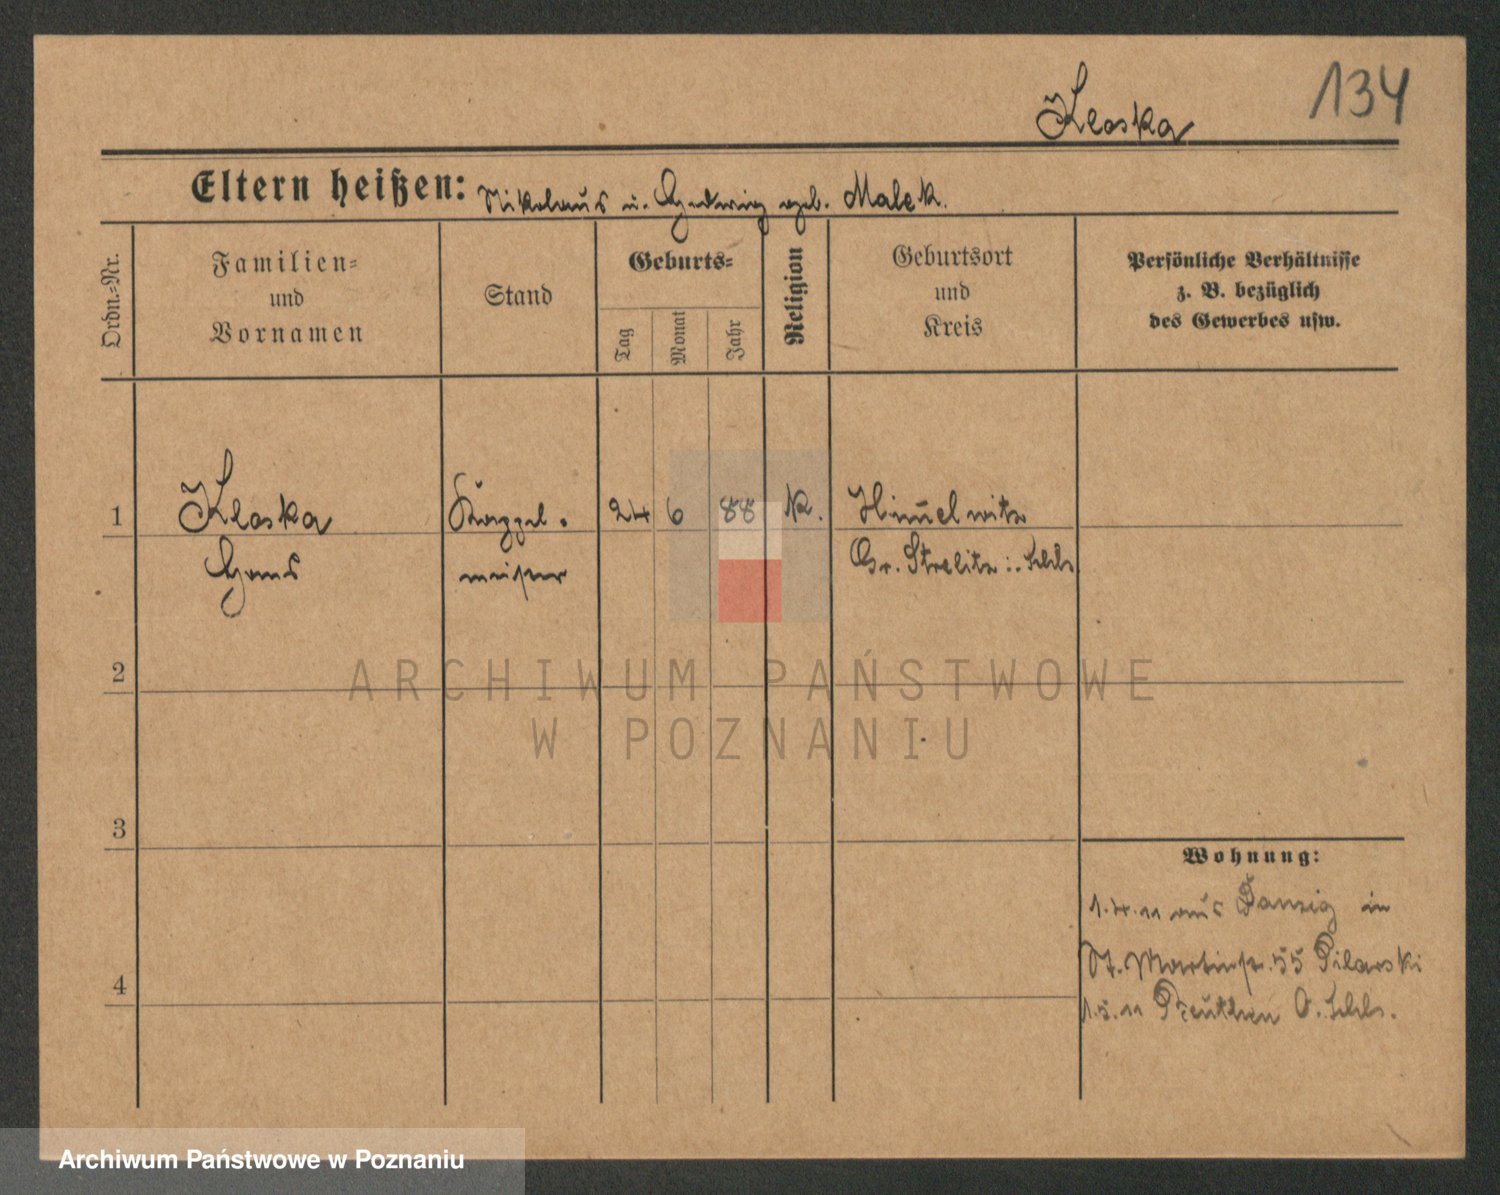 134
Kloska
Eltern heißen: Nikolaus u. Hedwig geb. Malek.
Ordn.-Nr.
Familien-
und
Vornamen
Stand
Geburts-
Tag
Monat
Jahr
Religion
Geburtsort
und
Kreis
Persönliche Verhältnisse
z. B. bezüglich
des Gewerbes usw.
1 Kloska 24 6 88 K. Himmelwitz
Hans meister Gr. Strelitz i. Schls
2
ARCHIWUM PAŃSTWOWE
W POZNANIU
3
Wohnung:
1.4.11 aus Danzig in
St. Martinstr. 55 Pilarski
4
1.5.11 Beuthen O. Schls.
Archiwum Państwowe w Poznaniu